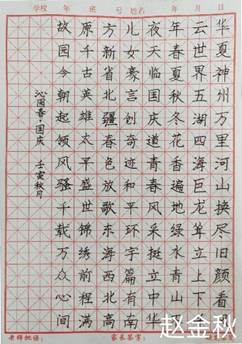 学校 年 班 号 姓名 年 月 日
华夏神州万里河山换尽旧颜看
云世界五湖四海巨龙耸立上下
年春夏秋冬花香遍地绿水青山
夜天临国庆道青春风采挺立中华
儿女豪言创奇迹和平环宇有
方新省北疆春色放歌东西北南
原千古英雄太早盛世锦绣前程满
故园今朝起领风骚千载万众心间
沁园春·国庆 壬寅秋月
老师批语： 家长签字：
赵金秋